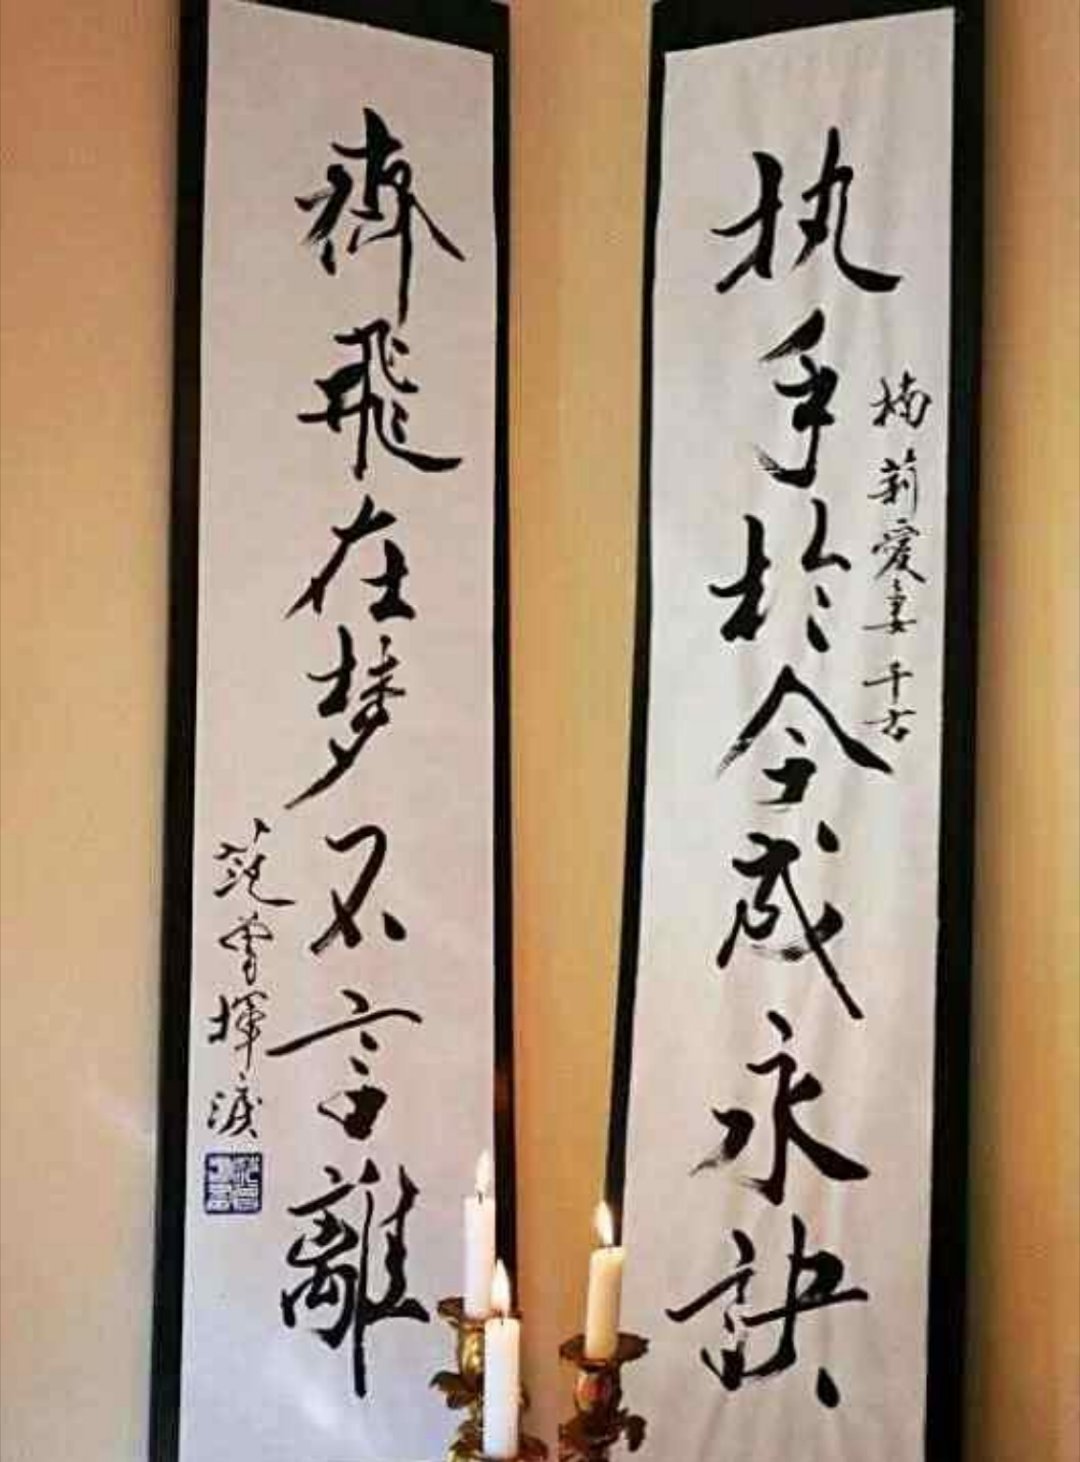 楠莉愛妻千古
执手於今成永訣
齊飛在梦不言離
范曾揮淚